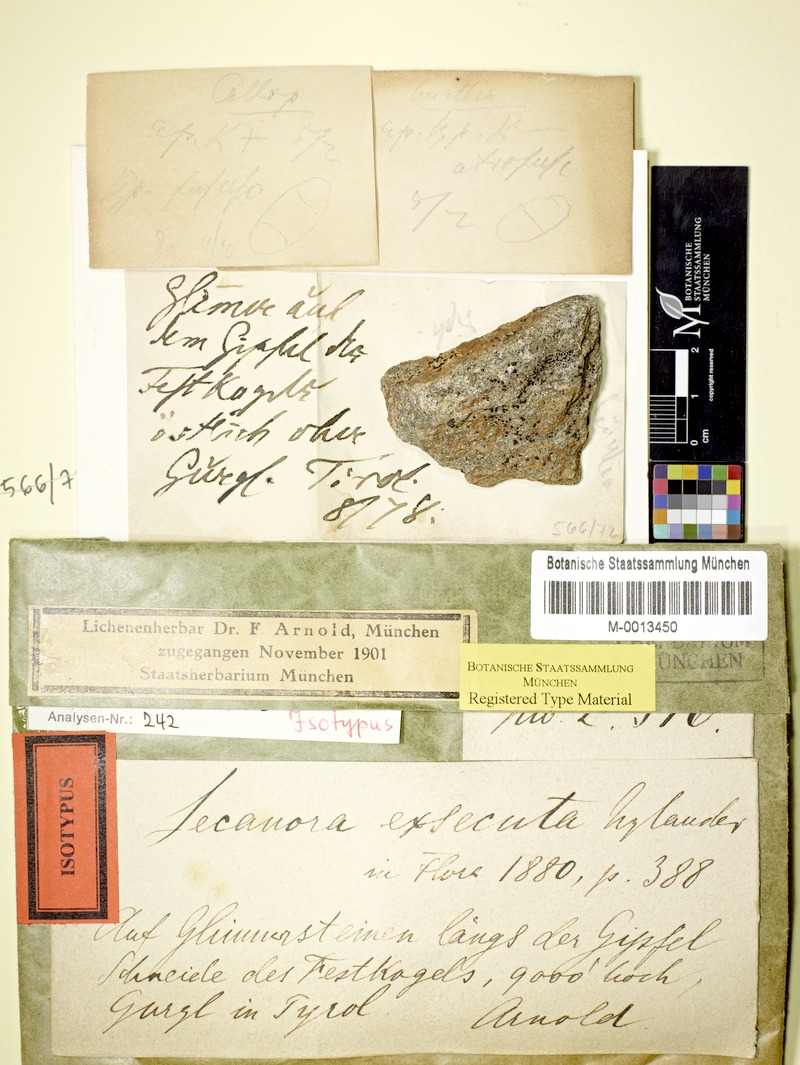 ap. K +
Glimmer auf
dem Gipfel des
Festkogels
östlich ober
Gurgl. Tirol.
8/78.
566/72
566/7
BOTANISCHE
STAATSSAMMLUNG
MÜNCHEN
copyright reserved
0 1 2
cm
Botanische Staatssammlung München
M-0013450
MÜNCHEN
Lichenenherbar Dr. F. Arnold, München
zugegangen November 1901
Staatsherbarium München
BOTANISCHE STAATSSAMMLUNG
MÜNCHEN
Registered Type Material
Analysen-Nr.: 242 Isotypus
ISOTYPUS
Lecanora exsecuta Nylander
in Flora 1880, p. 388
Auf Glimmersteinen längs der Gipfel
Schneide des Festkogels, 9000' hoch,
Gurgl in Tyrol. Arnold.